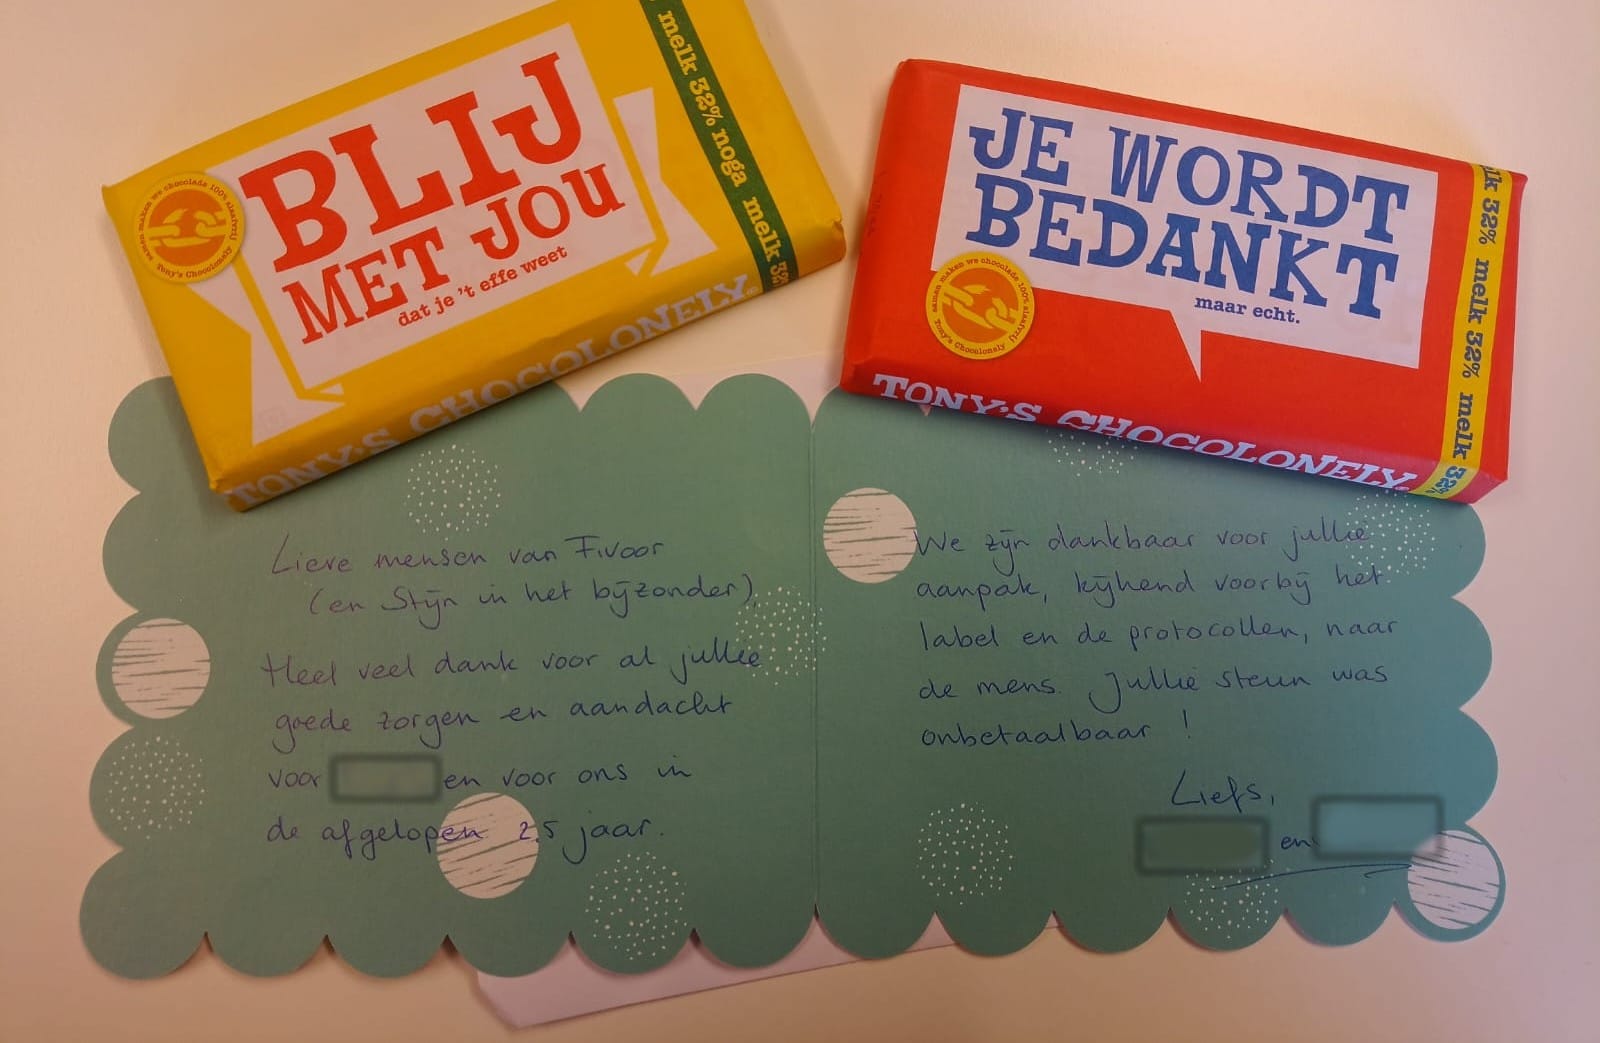 BLIJ
MET JOU
dat je 't effe weet
melk 32% noga melk 32%
samen maken we chocolade 100% slaafvrij
Tony's Chocolonely
TONY'S CHOCOLONELY
JE WORDT
BEDANKT
maar echt.
melk 32% melk 32% melk 32%
samen maken we chocolade 100% slaafvrij
Tony's Chocolonely
TONY'S CHOCOLONELY
Lieve mensen van Fivoor
(en Stijn in het bijzonder),
Heel veel dank voor al jullie
goede zorgen en aandacht
voor en voor ons in
de afgelopen 2,5 jaar.
We zijn dankbaar voor jullie
aanpak, kijkend voorbij het
label en de protocollen, naar
de mens. Jullie steun was
onbetaalbaar !
Liefs,
en